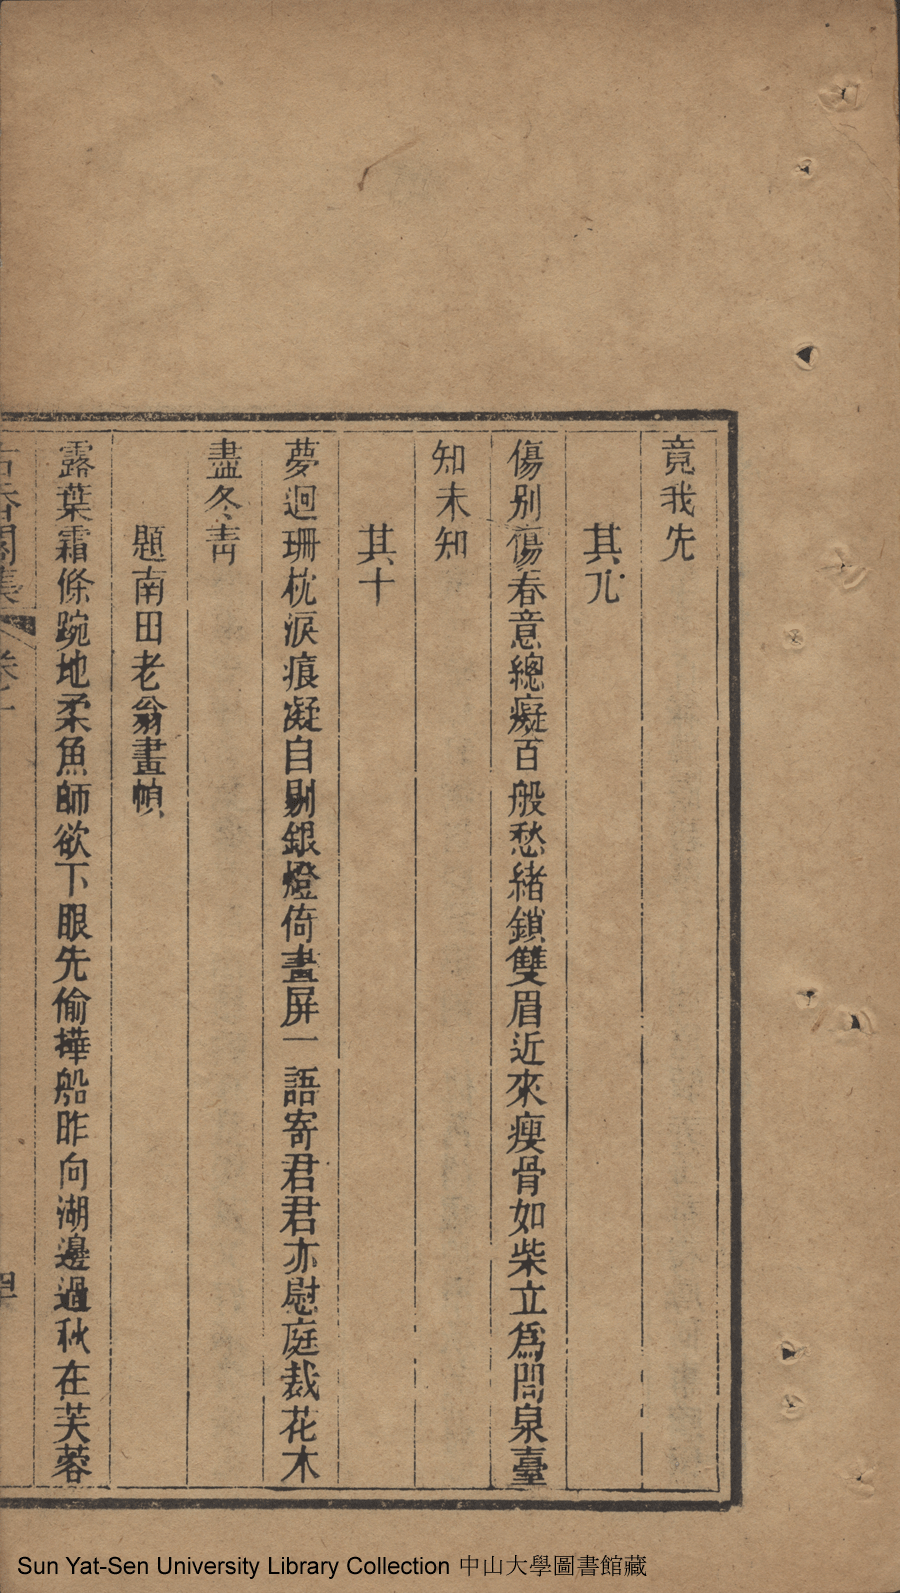 竟我先
其九
傷別傷春意總癡百般愁緒鎖雙眉近來瘦骨如柴立爲問泉臺
知未知
其十
夢迴珊枕淚痕凝自剔銀燈倚畫屏一語寄君君亦慰庭裁花木
盡冬靑
題南田老翁畫幀
露葉霜條踠地柔魚師欲下眼先偷撶船昨向湖邊過秋在芙蓉
Sun Yat-Sen University Library Collection 中山大學圖書館藏